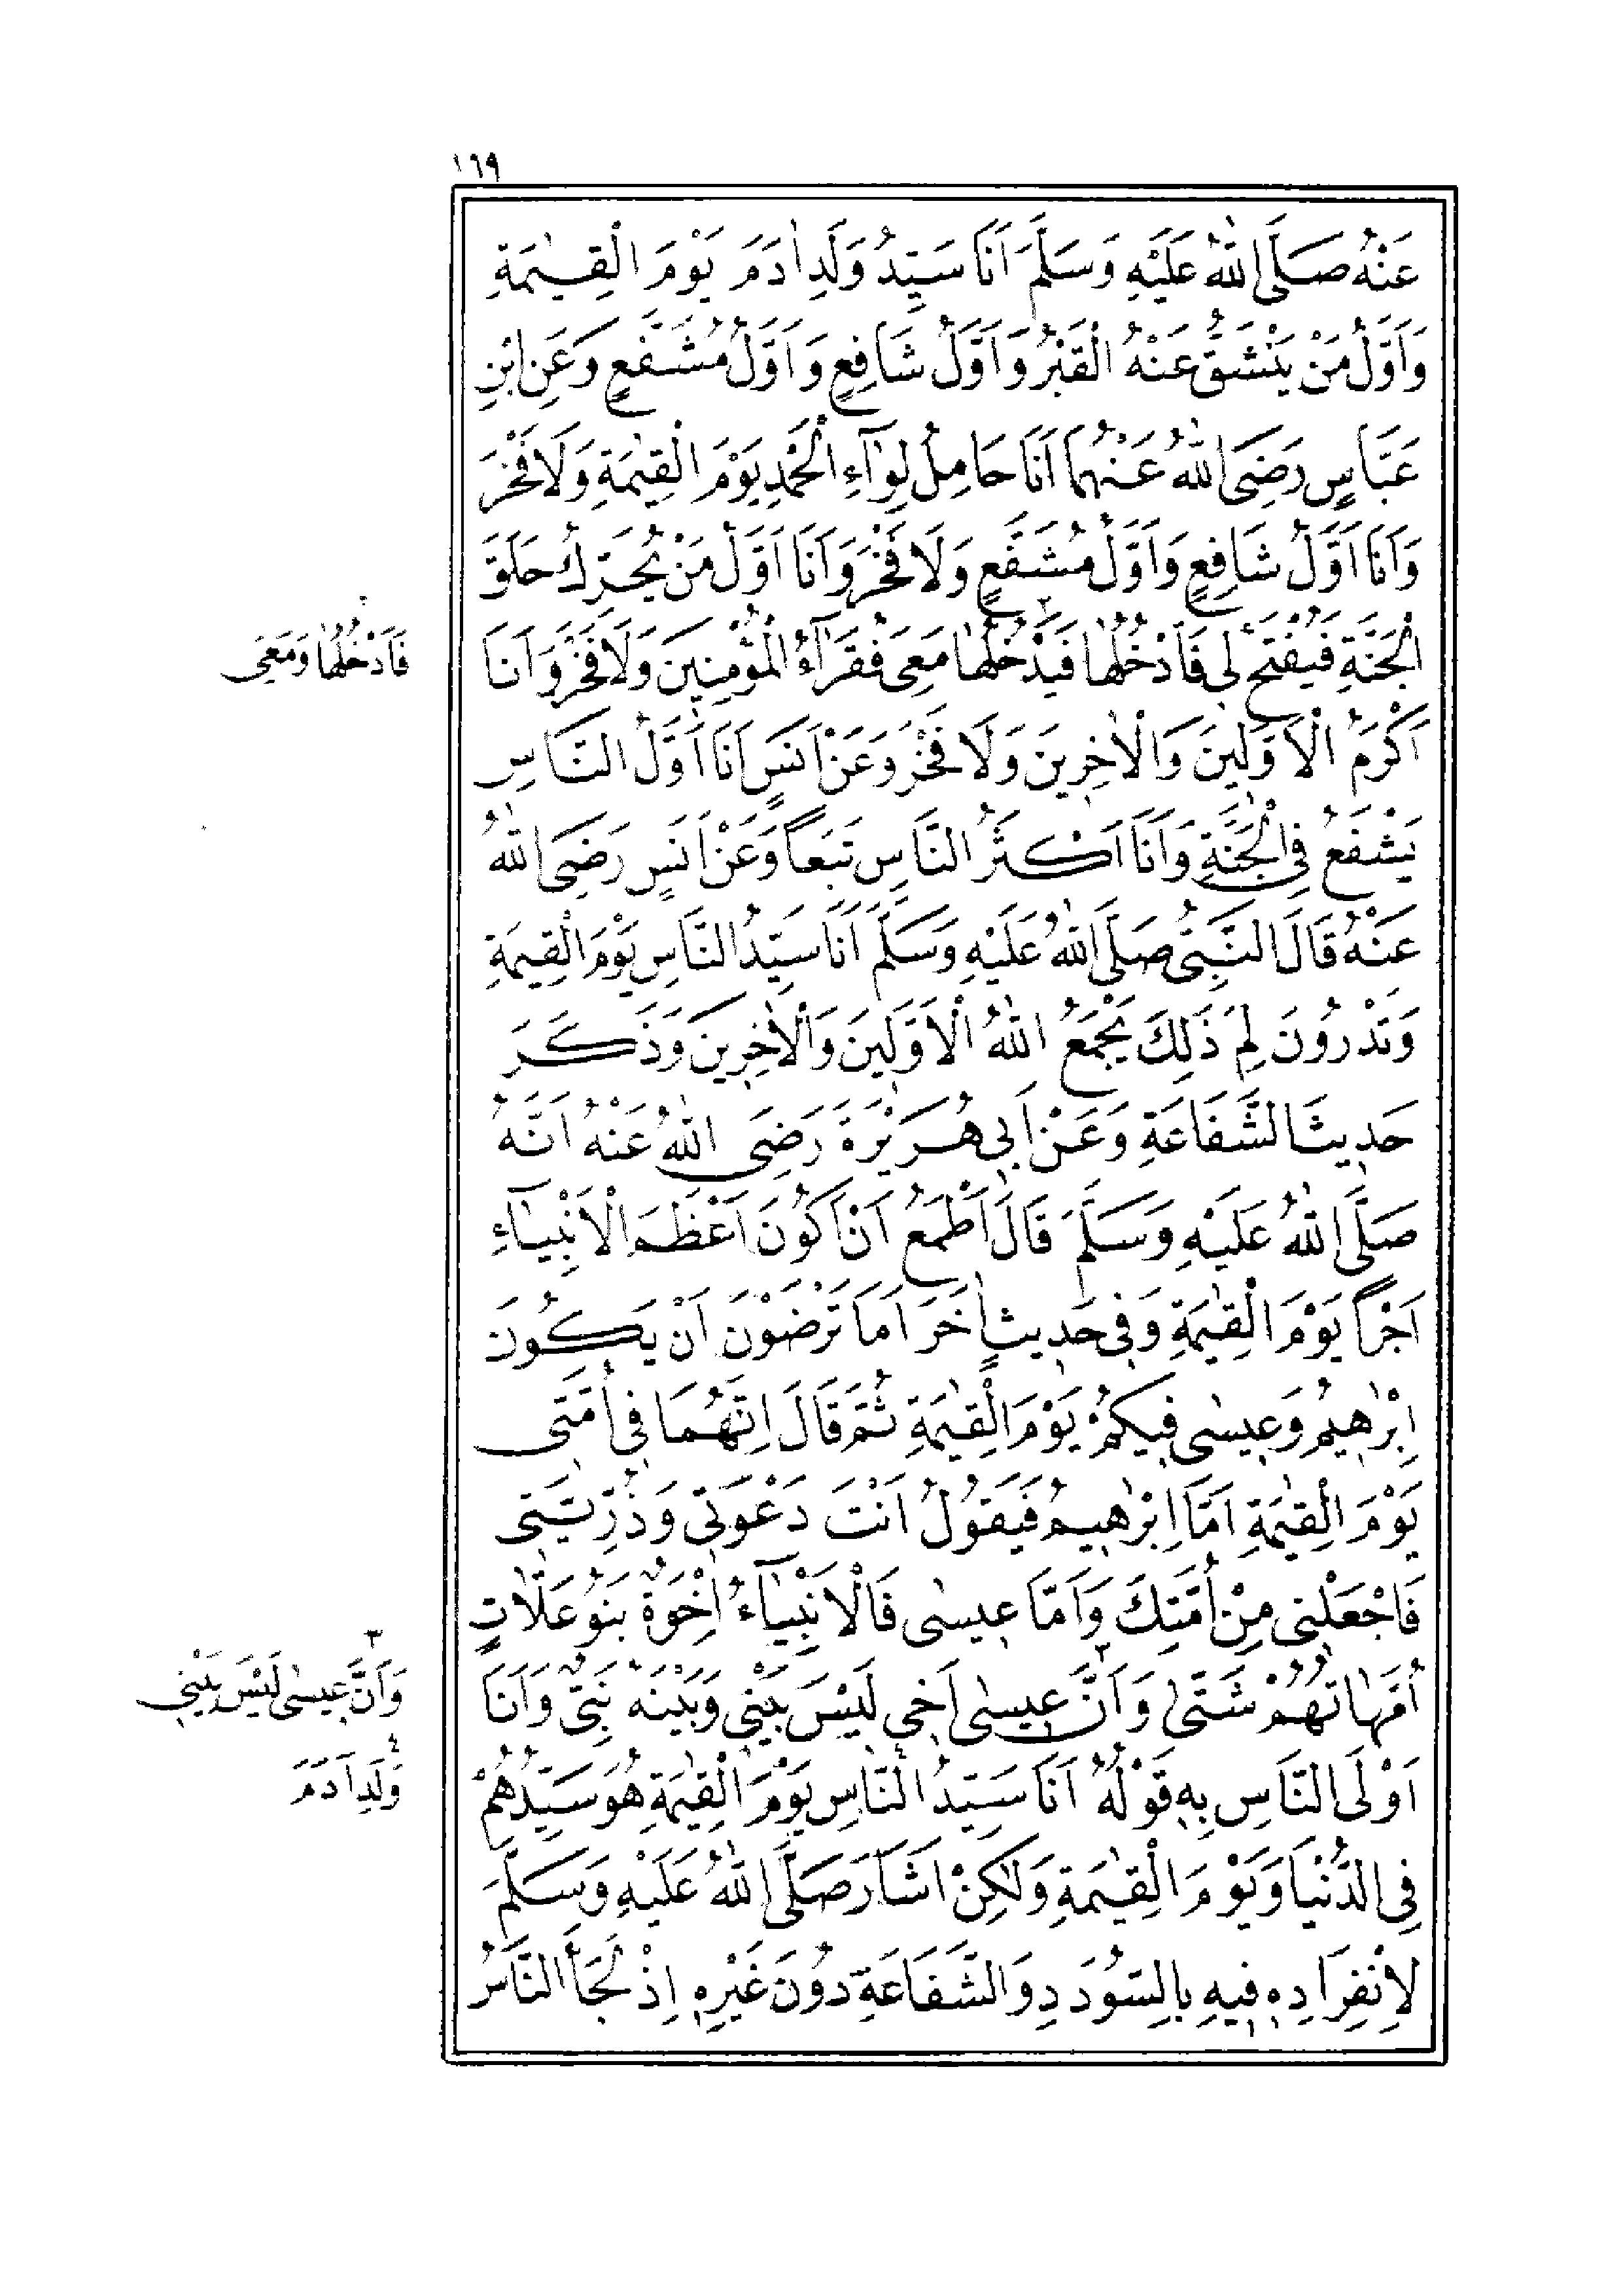 ١٦٩
عَنْهُ صَلَّى اللّٰهُ عَلَيْهِ وَسَلَّمَ اَنَا سَيِّدُ وَلَدِ اٰدَمَ يَوْمَ الْقِيٰمَةِ
وَاَوَّلُ مَنْ يَنْشَقُّ عَنْهُ الْقَبْرُ وَاَوَّلُ شَافِعٍ وَاَوَّلُ مُشَفَّعٍ وَعَنِ ابْنِ
عَبَّاسٍ رَضِىَ اللّٰهُ عَنْهُمَا اَنَا حَامِلُ لِوَآءِ الْحَمْدِ يَوْمَ الْقِيٰمَةِ وَلَا فَخْرَ
وَاَنَا اَوَّلُ شَافِعٍ وَاَوَّلُ مُشَفَّعٍ وَلَا فَخْرَ وَاَنَا اَوَّلُ مَنْ يُحَرِّكُ حَلَقَ
الْجَنَّةِ فَيُفْتَحُ لِى فَاَدْخُلُهَا فَيَدْخُلُهَا مَعِىَ فُقَرَآءُ الْمُؤْمِنِينَ وَلَا فَخْرَ وَاَنَا
فَاَدْخُلُهَا وَمَعِى
اَكْرَمُ الْاَوَّلِينَ وَالْاٰخِرِينَ وَلَا فَخْرَ وَعَنْ اَنَسٍ اَنَا اَوَّلُ النَّاسِ
يَشْفَعُ فِى الْجَنَّةِ وَاَنَا اَكْثَرُ النَّاسِ تَبَعًا وَعَنْ اَنَسٍ رَضِىَ اللّٰهُ
عَنْهُ قَالَ النَّبِىُّ صَلَّى اللّٰهُ عَلَيْهِ وَسَلَّمَ اَنَا سَيِّدُ النَّاسِ يَوْمَ الْقِيٰمَةِ
وَتَدْرُونَ لِمَ ذَلِكَ يَجْمَعُ اللّٰهُ الْاَوَّلِينَ وَالْاٰخِرِينَ وَذَكَرَ
حَدِيثَ الشَّفَاعَةِ وَعَنْ اَبِى هُرَيْرَةَ رَضِىَ اللّٰهُ عَنْهُ اَنَّهُ
صَلَّى اللّٰهُ عَلَيْهِ وَسَلَّمَ قَالَ اَطْمَعُ اَنْ اَكُونَ اَعْظَمَ الْاَنْبِيَآءِ
اَجْرًا يَوْمَ الْقِيٰمَةِ وَفِى حَدِيثٍ اٰخَرَ اَمَا تَرْضَوْنَ اَنْ يَكُونَ
اِبْرٰهِيمُ وَعِيسٰى فِيكُمْ يَوْمَ الْقِيٰمَةِ ثُمَّ قَالَ اِنَّهُمَا فِى اُمَّتِى
يَوْمَ الْقِيٰمَةِ اَمَّا اِبْرٰهِيمُ فَيَقُولُ اَنْتَ دَعْوَتِى وَذُرِّيَّتِى
فَاجْعَلْنِى مِنْ اُمَّتِكَ وَاَمَّا عِيسٰى فَالْاَنْبِيَآءُ اِخْوَةٌ بَنُو عَلَّاتٍ
اُمَّهَاتُهُمْ شَتَّى وَاَنَّ عِيسٰى اَخِى لَيْسَ بَيْنِى وَبَيْنَهُ نَبِىٌّ وَاَنَا
٣ وَاَنَّ عِيسٰى لَيْسَ بَيْنِى
اَوْلَى النَّاسِ بِهِ قَوْلُهُ اَنَا سَيِّدُ النَّاسِ يَوْمَ الْقِيٰمَةِ هُوَ سَيِّدُهُمْ
٤ وَلَدِ آدَمَ
فِى الدُّنْيَا وَيَوْمَ الْقِيٰمَةِ وَلٰكِنْ اَشَارَ صَلَّى اللّٰهُ عَلَيْهِ وَسَلَّمَ
لِاِنْفِرَادِهِ فِيهِ بِالسُّودَدِ وَالشَّفَاعَةِ دُونَ غَيْرِهِ اِذْ لَجَأَ النَّاسُ